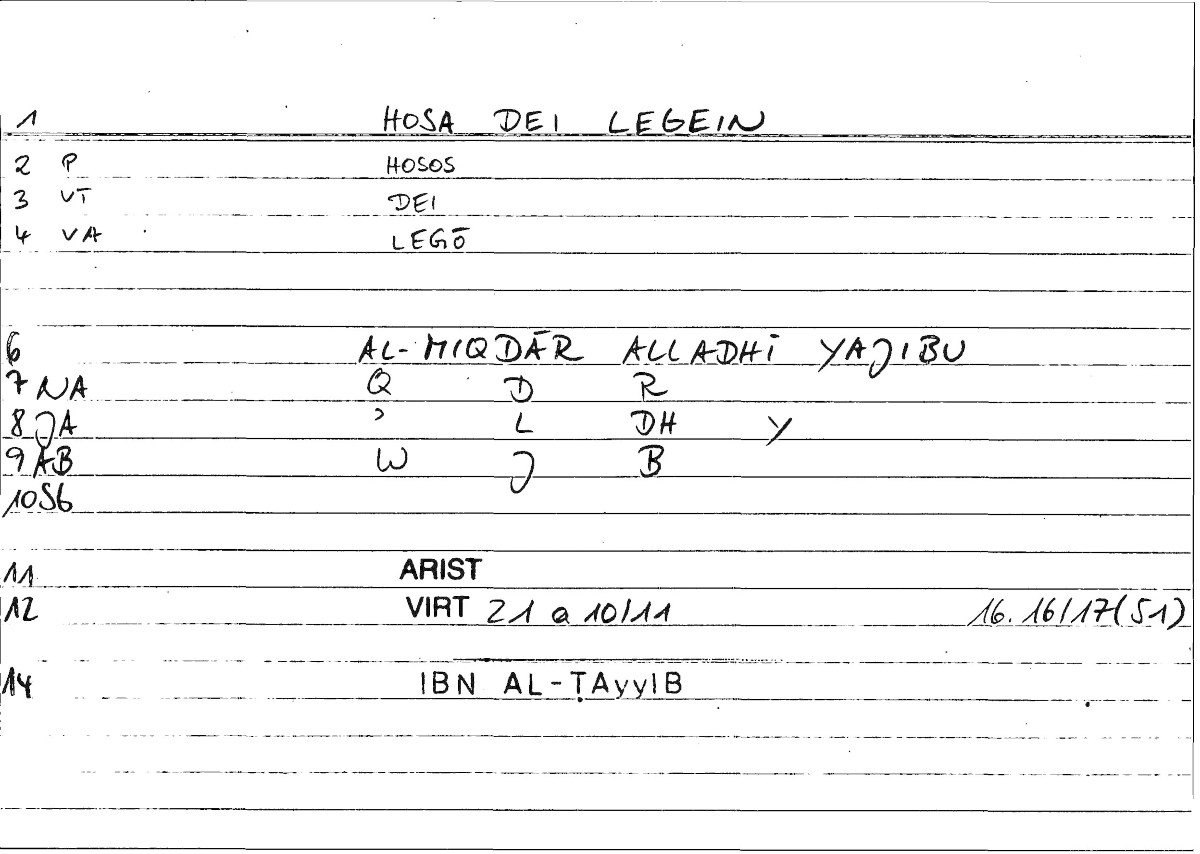 1 HOSA DEI LEGEIN
2 P HOSOS
3 VT DEI
4 VA LEGŌ
6 AL-MIQDĀR ALLADHĪ YAJIBU
7 NA Q D R
8 JA ʾ L DH Y
9 AB W J B
10 S6
11 ARIST
12 VIRT 21 a 10/11 16.16/17(51)
14 IBN AL-ṬAyyIB